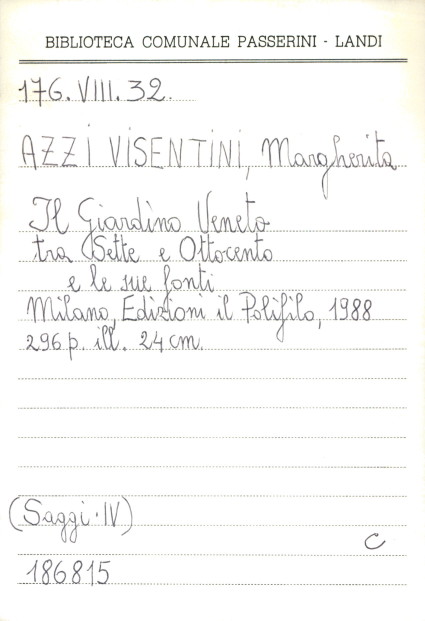 BIBLIOTECA COMUNALE PASSERINI - LANDI
176. VIII. 32.
AZZI VISENTINI, Margherita
Il Giardino Veneto
tra Sette e Ottocento
e le sue fonti
Milano, Edizioni il Polifilo, 1988
296 p. ill. 24 cm.
(Saggi · IV)
C
186815